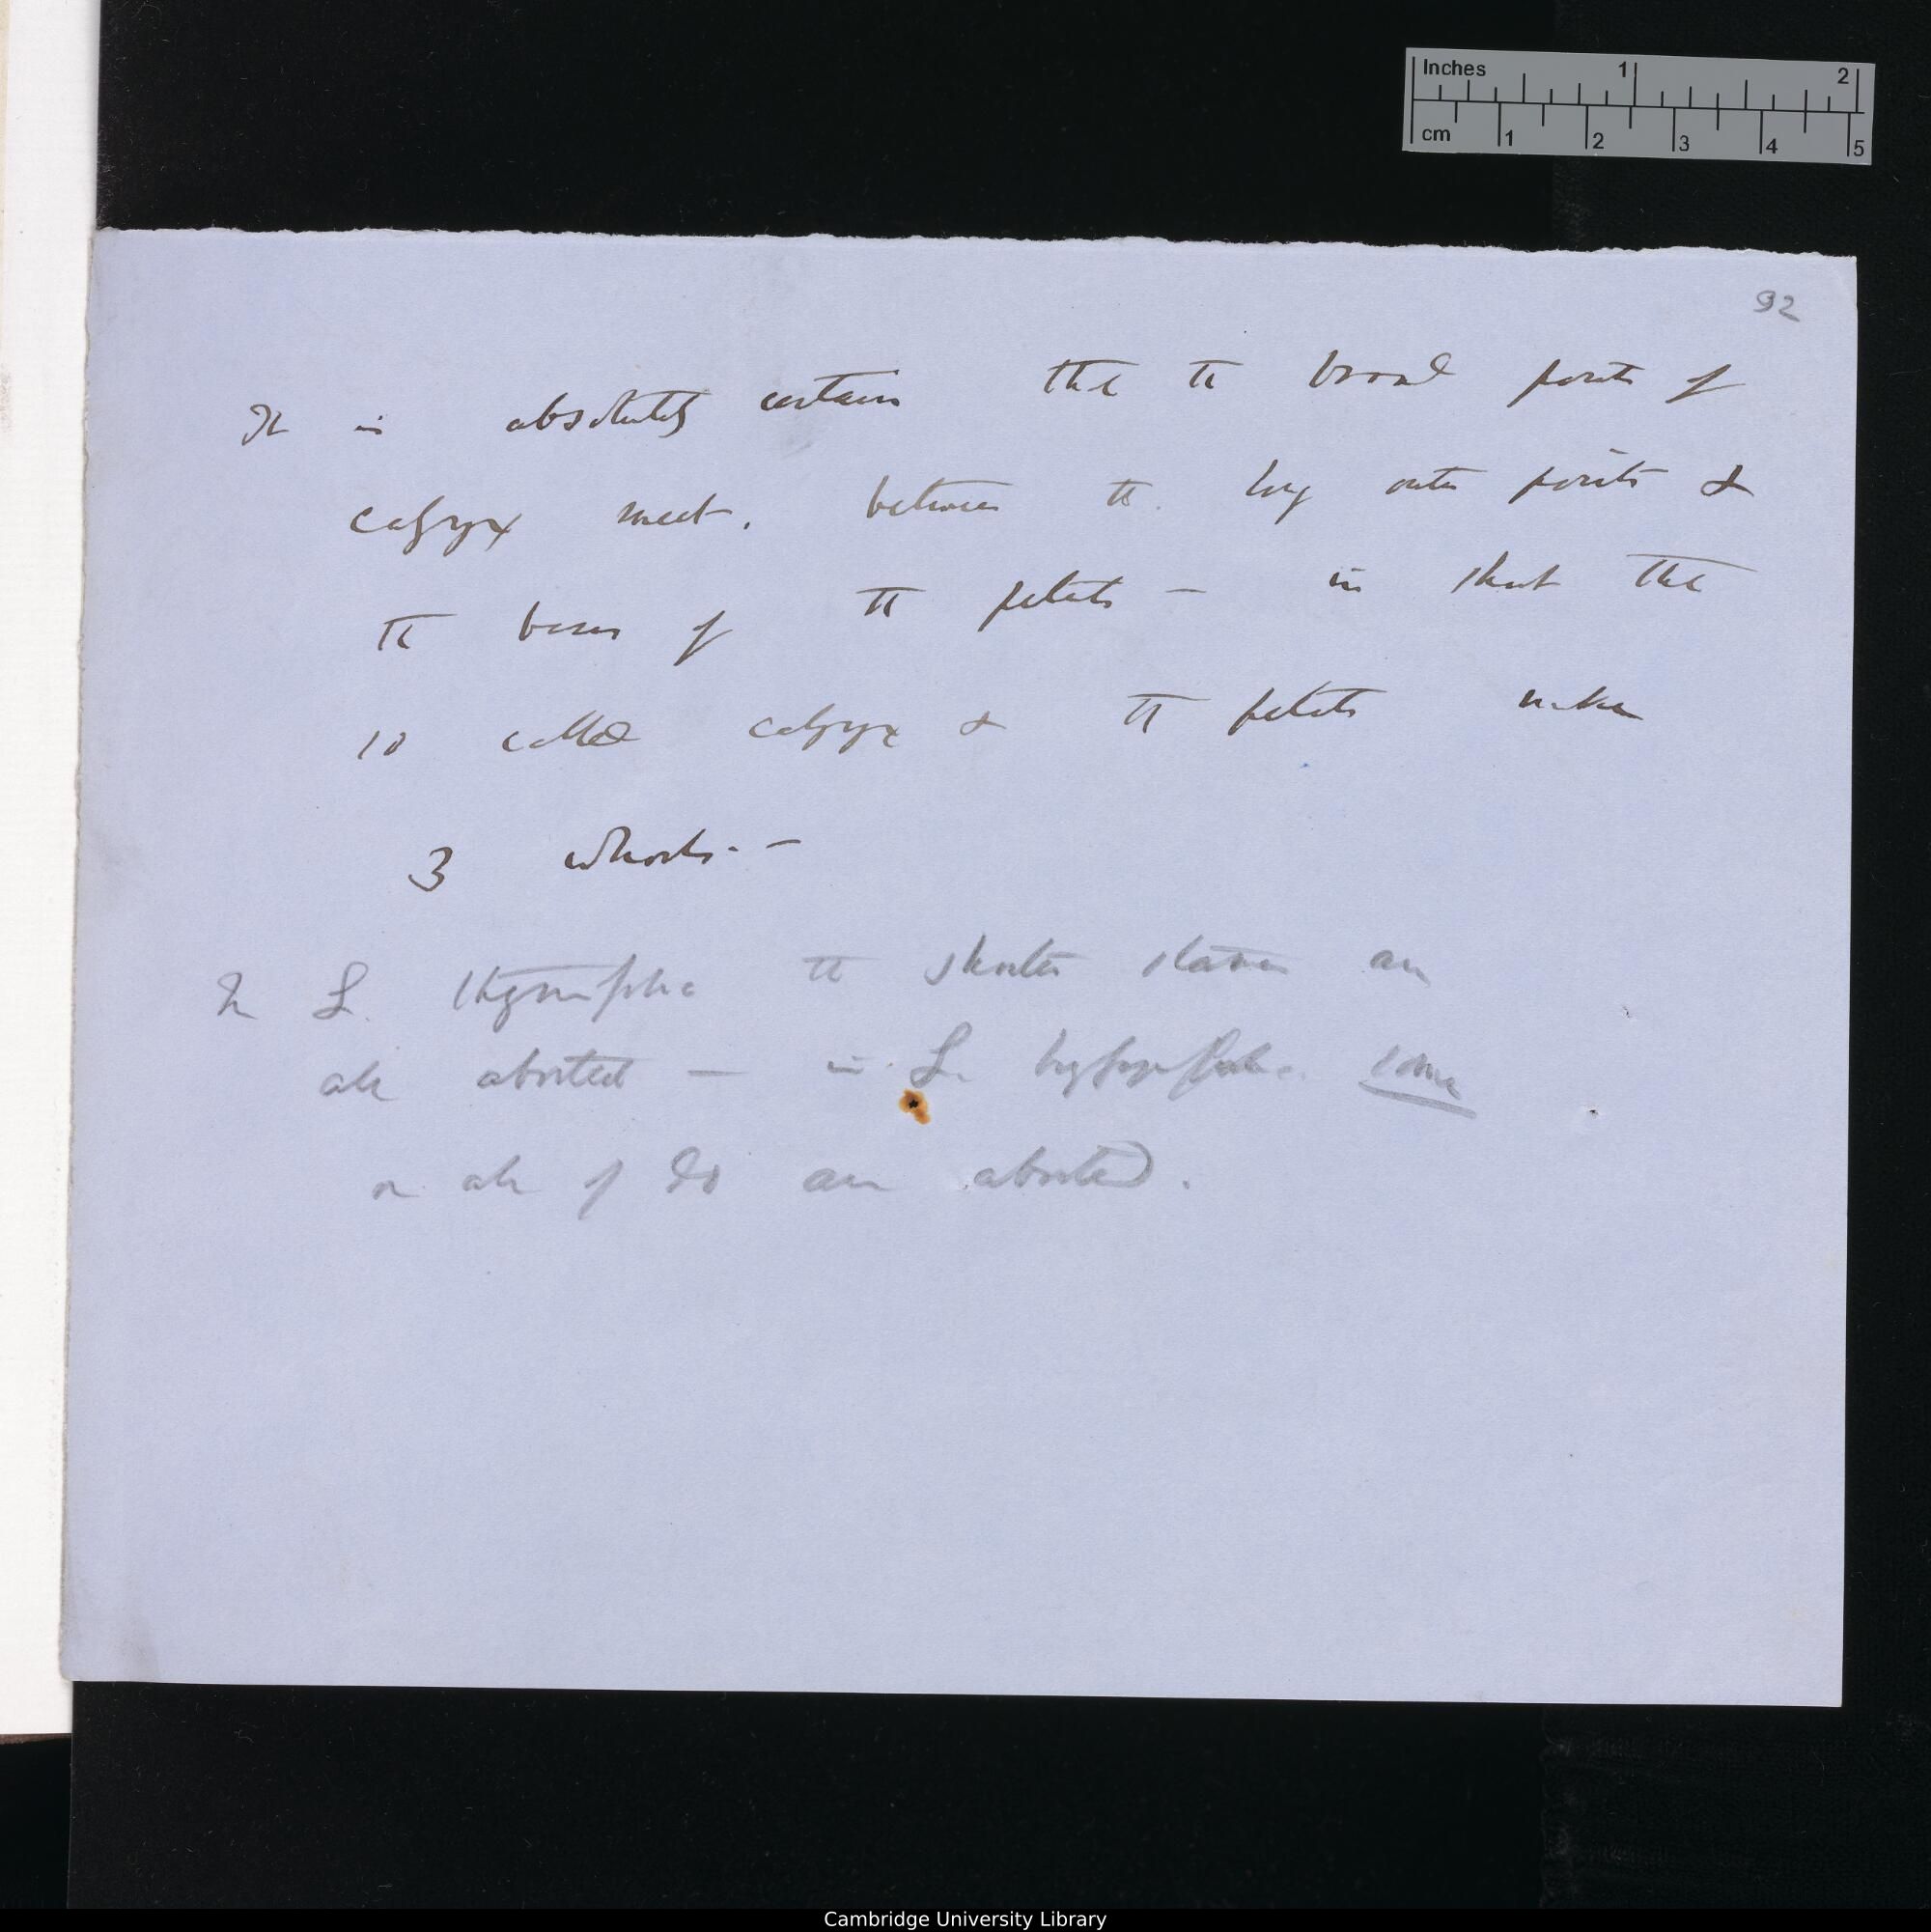 Inches 1 2
cm 1 2 3 4 5
92
It is absolutely certain that the broad points of
calyx meet. between the long outer points &
the bases of the petals — in short the
so called calyx & the petals make
3 whorls. —
In L. thymifolia the shorter stamens are
all aborted — in L. hyssopifolia some
or all of do are aborted.
Cambridge University Library